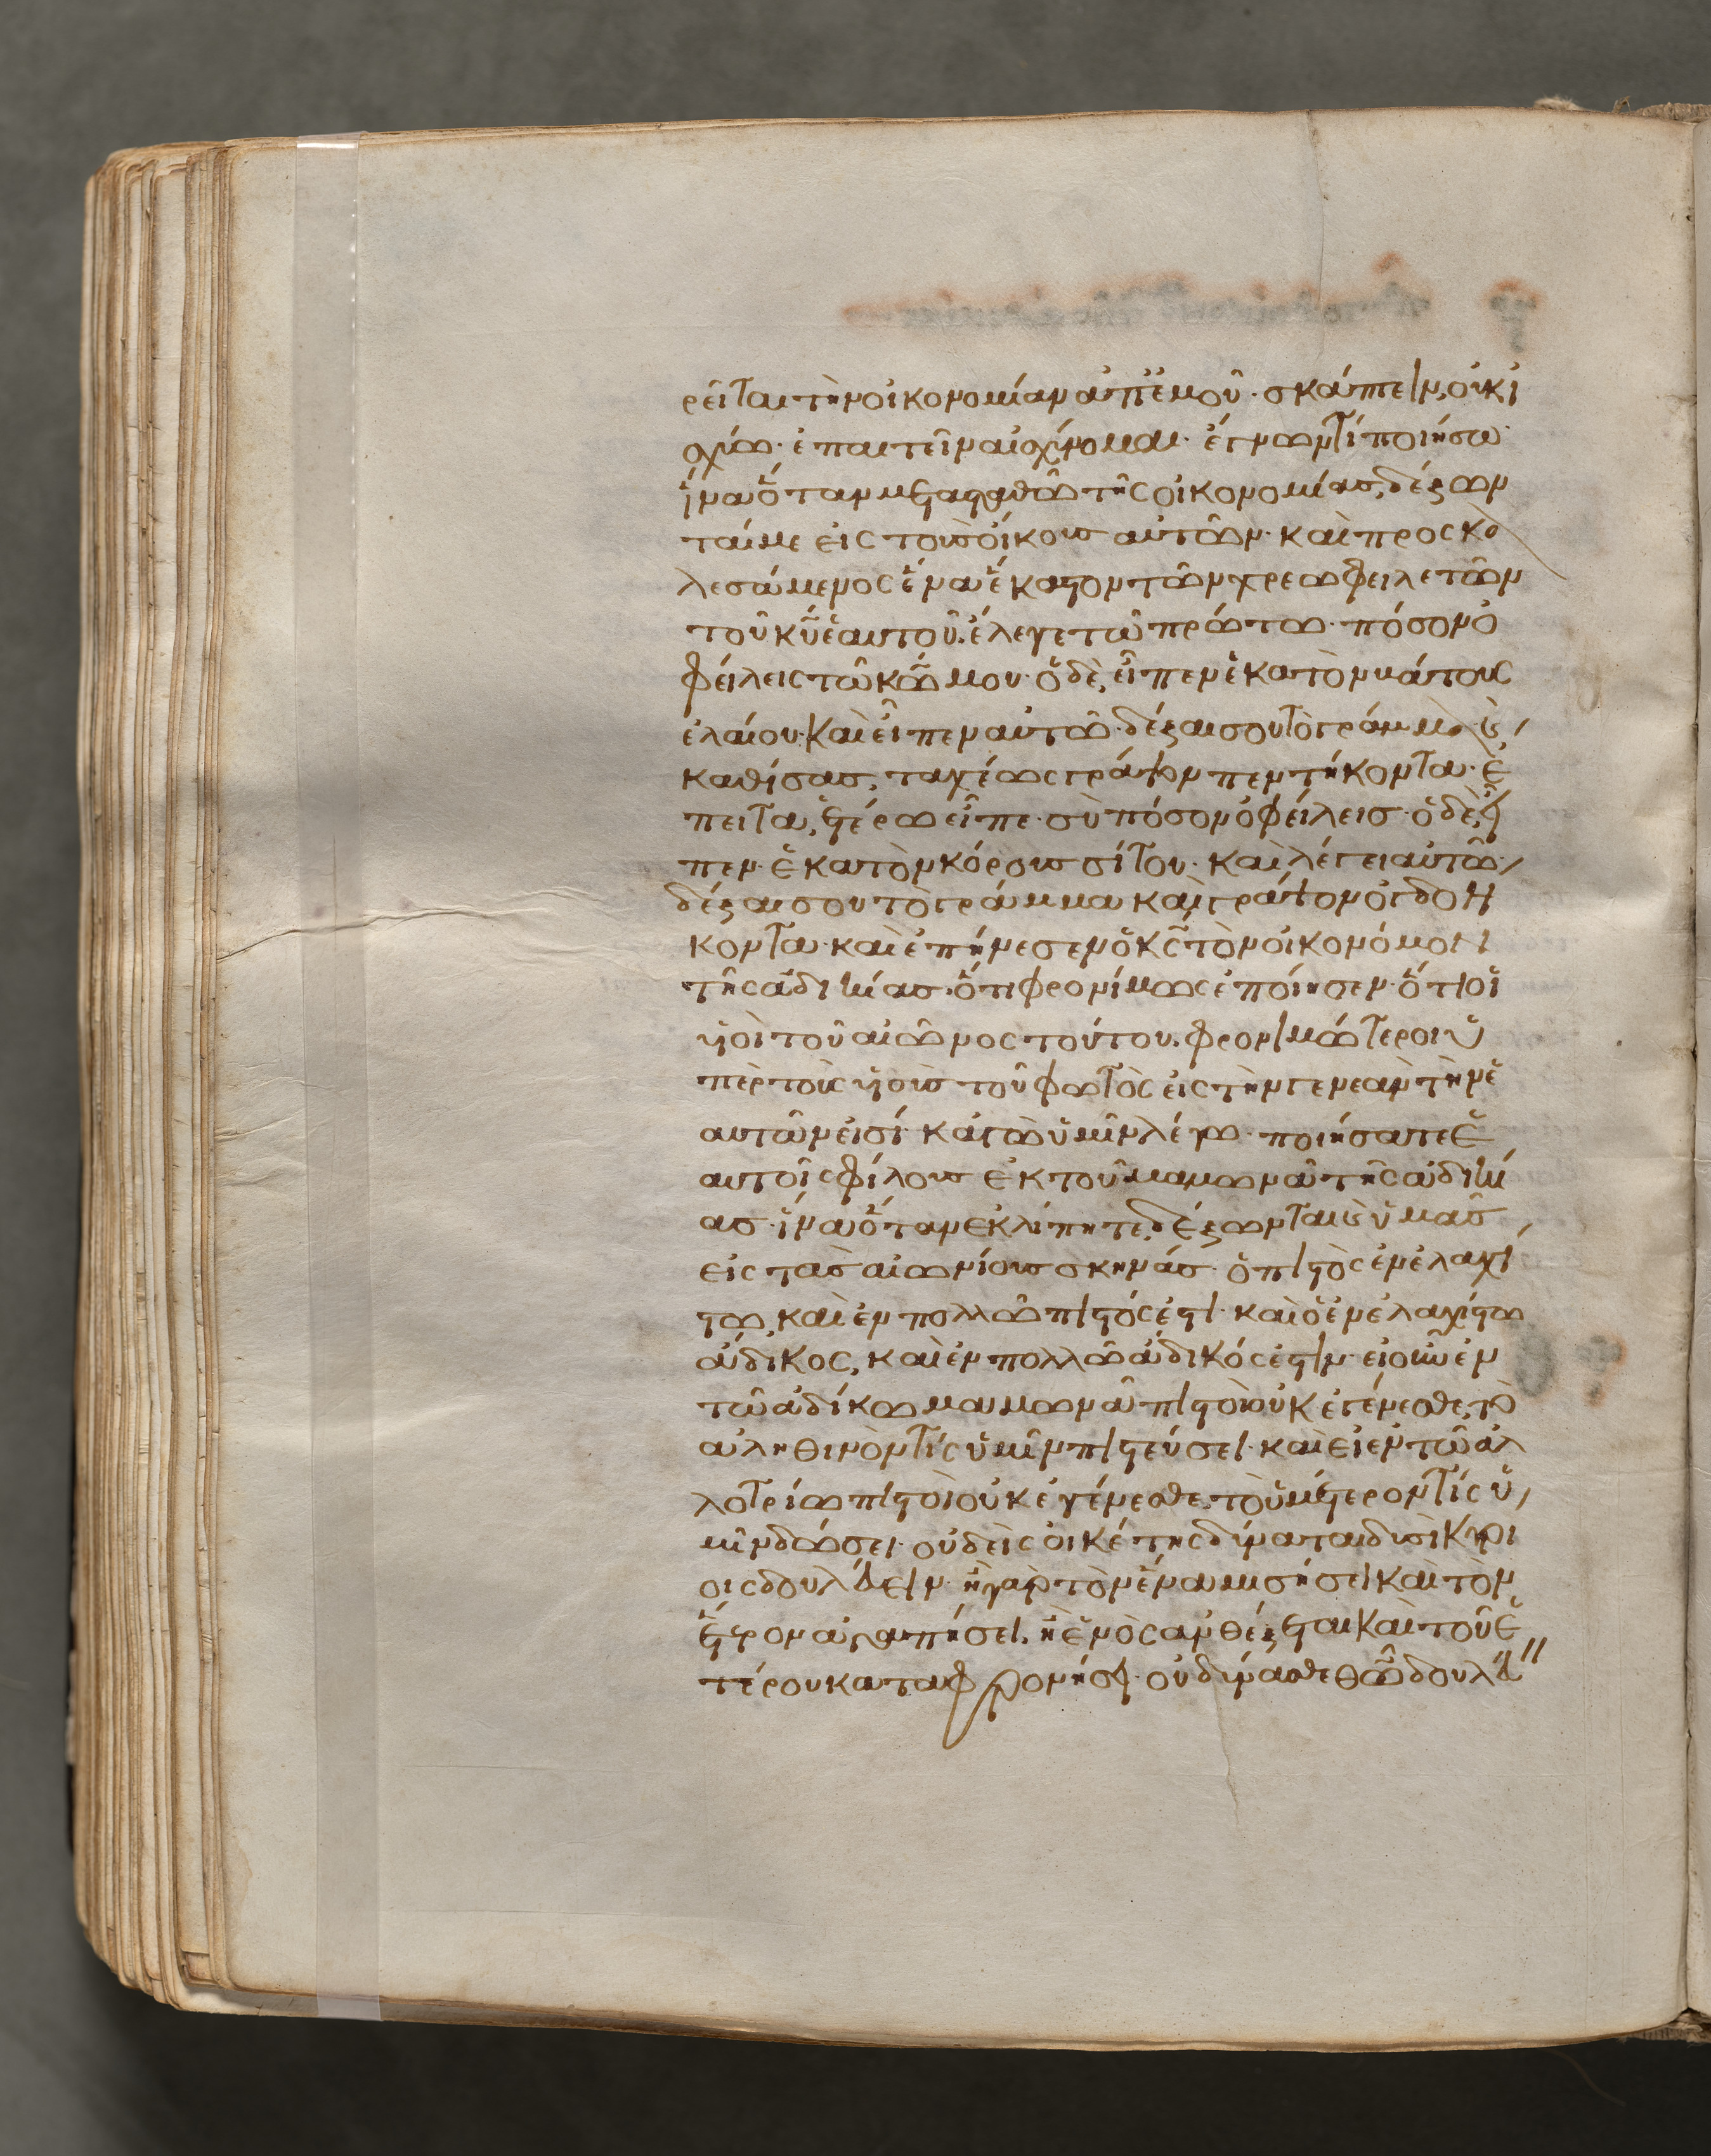 ρεῖται τὴν οἰκονομίαν ἀπ' ἐμοῦ· σκάπτειν, οὐκ ἰ
σχύω· ἐπαιτεῖν αἰσχύνομαι· ἔγνων τί ποιήσω·
ἵνα ὅταν μετασταθῶ τῆς οἰκονομίας, δέξων
ταί με εἰς τοὺς οἴκους αὐτῶν· καὶ προσκα
λεσάμενος ἕνα ἕκαστον τῶν χρεωφειλετῶν
τοῦ κυ ἑαυτοῦ, ἔλεγε τῷ πρώτω· πόσον ὀ
φείλεις τῶ κω μου· ὁ δὲ, εἶπεν ἑκατὸν βάτους
ἐλαίου· καὶ εἶπεν αὐτῶ· δέξαι σου τὸ γράμμα καὶ
καθίσας, ταχέως γράψον πεντήκοντα· ἔ
πειτα, ἑτέρω εἶπε· σὺ πόσον ὀφείλεις· ὁ δὲ, εἶ
πεν· ἑκατὸν κόρους σίτου· καὶ λέγει αὐτῶ·
δέξαι σου τὸ γράμμα καὶ γράψον ὀγδοή
κοντα· καὶ ἐπήνεσεν ὁ κς τὸν οἰκονόμον
τῆς ἀδικίας· ὅτι φρονίμως ἐποίησεν· ὅτι οἱ
υἱοὶ τοῦ αἰῶνος τούτου, φρονιμώτεροι ὑ
πὲρ τοὺς υἱοὺς τοῦ φωτὸς εἰς τὴν γενεὰν τὴν ἑ
αυτῶν εἰσί· κἀγὼ ὑμῖν λέγω· ποιήσατε ἑ
αυτοῖς φίλους ἐκ τοῦ μαμωνᾶ τῆς ἀδικί
ας· ἵνα ὅταν ἐκλίπητε, δέξωνται ὑμᾶς
εἰς τὰς αἰωνίους σκηνάς· ὁ πιστὸς ἐν ἐλαχί
στω, καὶ ἐν πολλῶ πιστός ἐστι· καὶ ὁ ἐν ἐλαχίστω
ἄδικος, καὶ ἐν πολλῶ ἄδικός ἐστιν· εἰ οὖν ἐν
τῶ ἀδίκω μαμωνᾶ πιστοὶ οὐκ ἐγένεσθε, τὸ
ἀληθινὸν τίς ὑμῖν πιστεύσει· καὶ εἰ ἐν τῶ ἀλ
λοτρίω πιστοὶ οὐκ ἐγένεσθε, τὸ ὑμέτερον τίς ὑ
μῖν δώσει· οὐδεὶς οἰκέτης δύναται δυσὶ κυρί
οις δουλεύειν· ἢ γὰρ τὸν ἕνα μισήσει καὶ τὸν
ἕτερον ἀγαπήσει, ἢ ἑνὸς ἀνθέξεται καὶ τοῦ ἑ
τέρου καταφρονήσει· οὐ δύνασθε θω δουλεύ